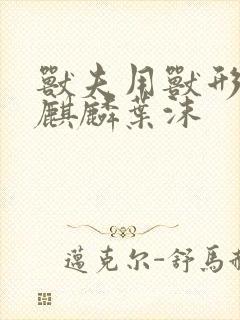 獸夫用獸形
麒麟葉沫
邁克尔-舒馬赫